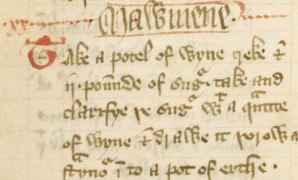 Mawmene.
Take a potel of wyne greke &
ii. pounde of sugᷓ. take and
clarifye þe sugᷓ wᵗ a quᷓtite
of wyne & drawe it þorow a
stynoᷓ in to a pot of erthe.